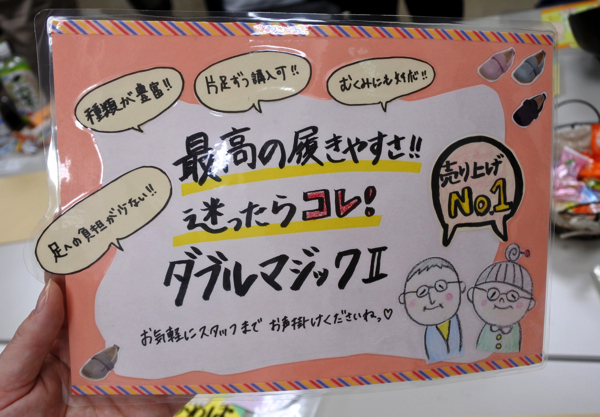 種類が豊富!!
片足ずつ購入可!!
むくみにも対応!!
足への負担が少ない!!
最高の履きやすさ!!
迷ったらコレ!
ダブルマジックⅡ
売り上げ
No.1
お気軽にスタッフまで お声掛けくださいねっ♡